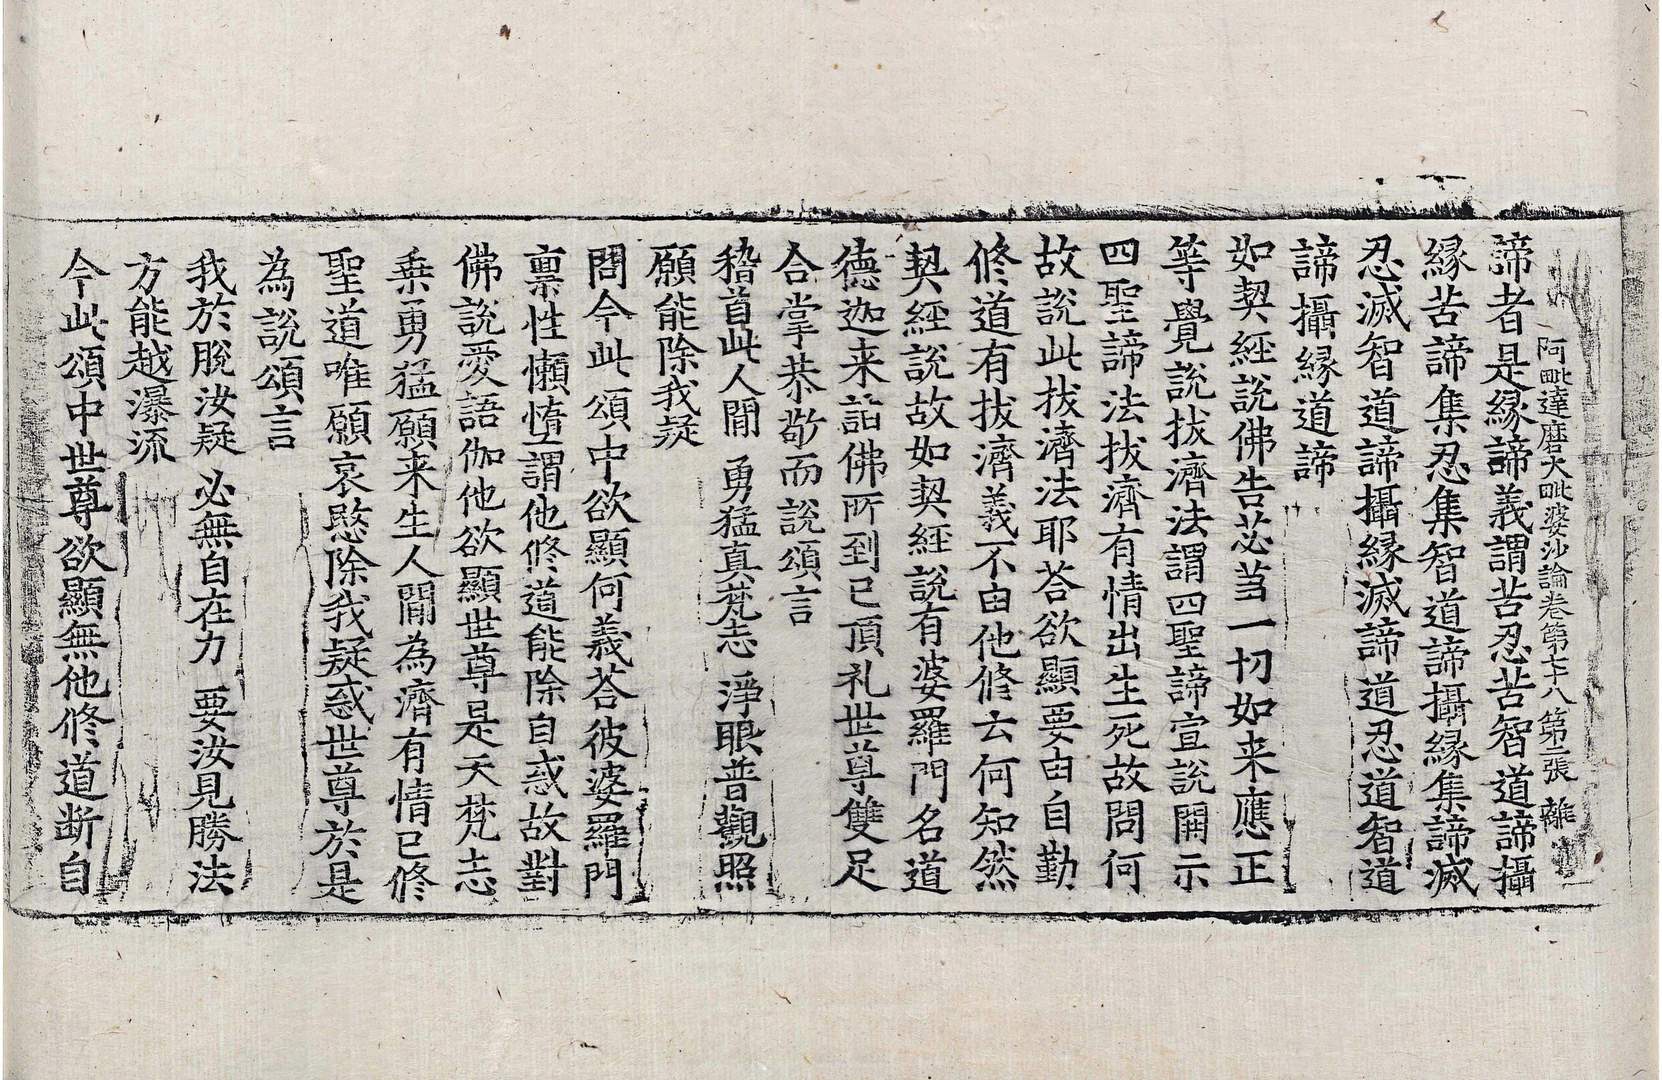 阿毗達磨大毗婆沙論卷第七十八 第二張 離
諦者是緣諦義謂苦忍苦智道諦攝
緣苦諦集忍集智道諦攝緣集諦滅
忍滅智道諦攝緣滅諦道忍道智道
諦攝緣道諦
如契經說佛告苾芻一切如来應正
等覺說拔濟法謂四聖諦宣說開示
四聖諦法拔濟有情出生死故問何
故說此拔濟法耶荅欲顯要由自勤
修道有拔濟義不由他修云何知然
契經說故如契經說有婆羅門名道
德迦来詣佛所到已頂礼世尊雙足
合掌恭敬而說頌言
稽首此人間 勇猛真梵志 淨眼普觀照
願能除我疑
問今此頌中欲顯何義荅彼婆羅門
稟性懶惰謂他修道能除自惑故對
佛說愛語伽他欲顯世尊是天梵志
乗勇猛願来生人間為濟有情已修
聖道唯願哀愍除我疑惑世尊於是
為說頌言
我於脫汝疑 必無自在力 要汝見勝法
方能越瀑流
今此頌中世尊欲顯無他修道斷自